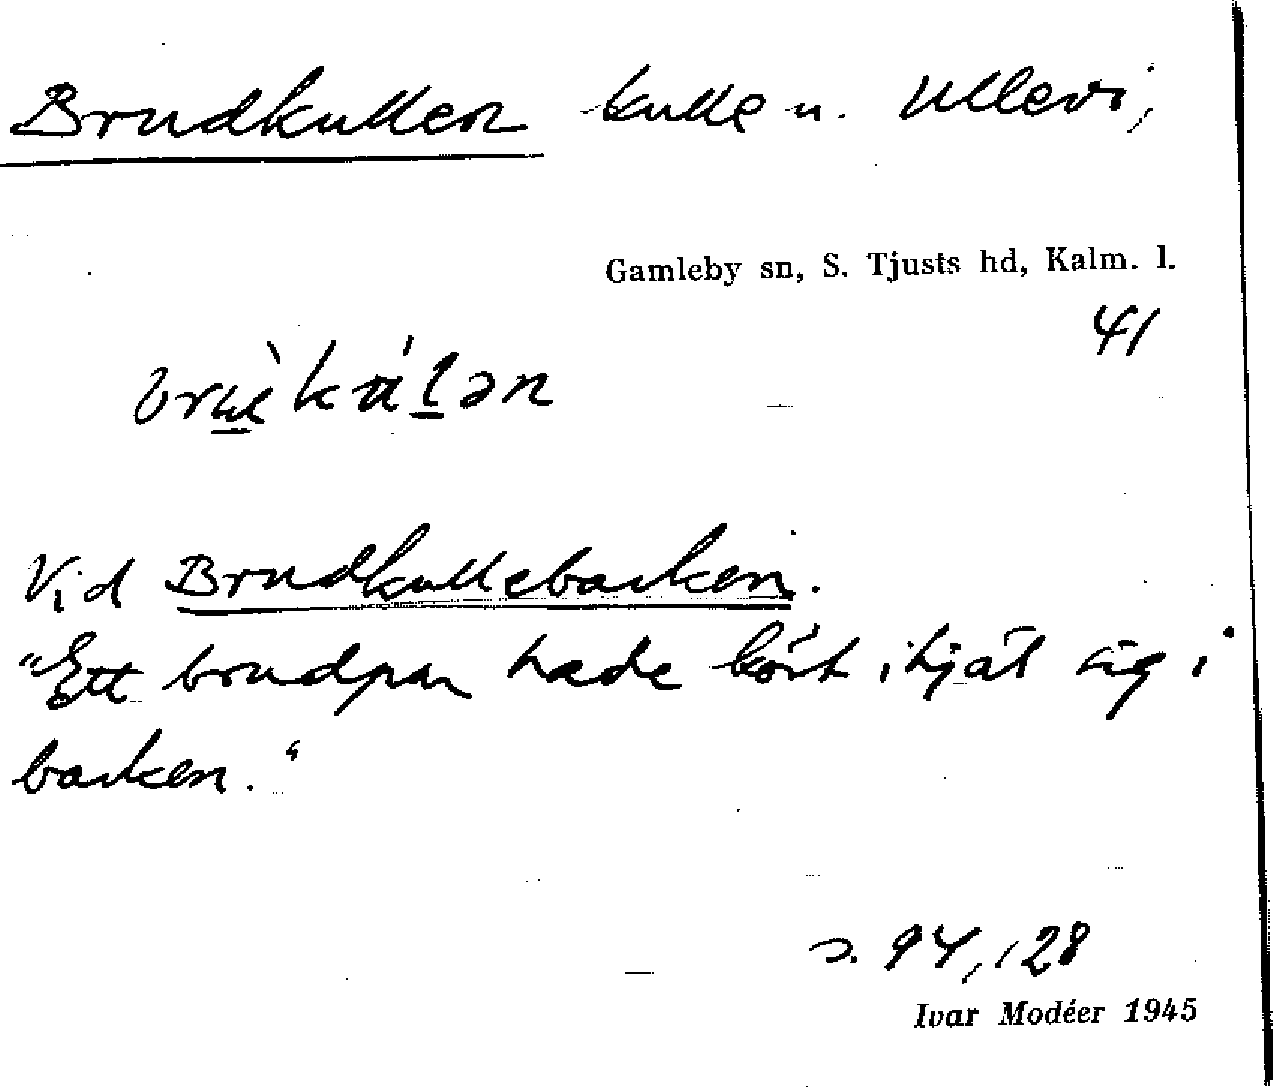 Brudkullen kulle u. Ullevi,
Gamleby sn, S. Tjusts hd, Kalm. l.
41
Vid Brudkullebacken.
"Ett brudpar hade kört ihjäl sig i
backen."
s. 94, 128
Ivar Modéer 1945